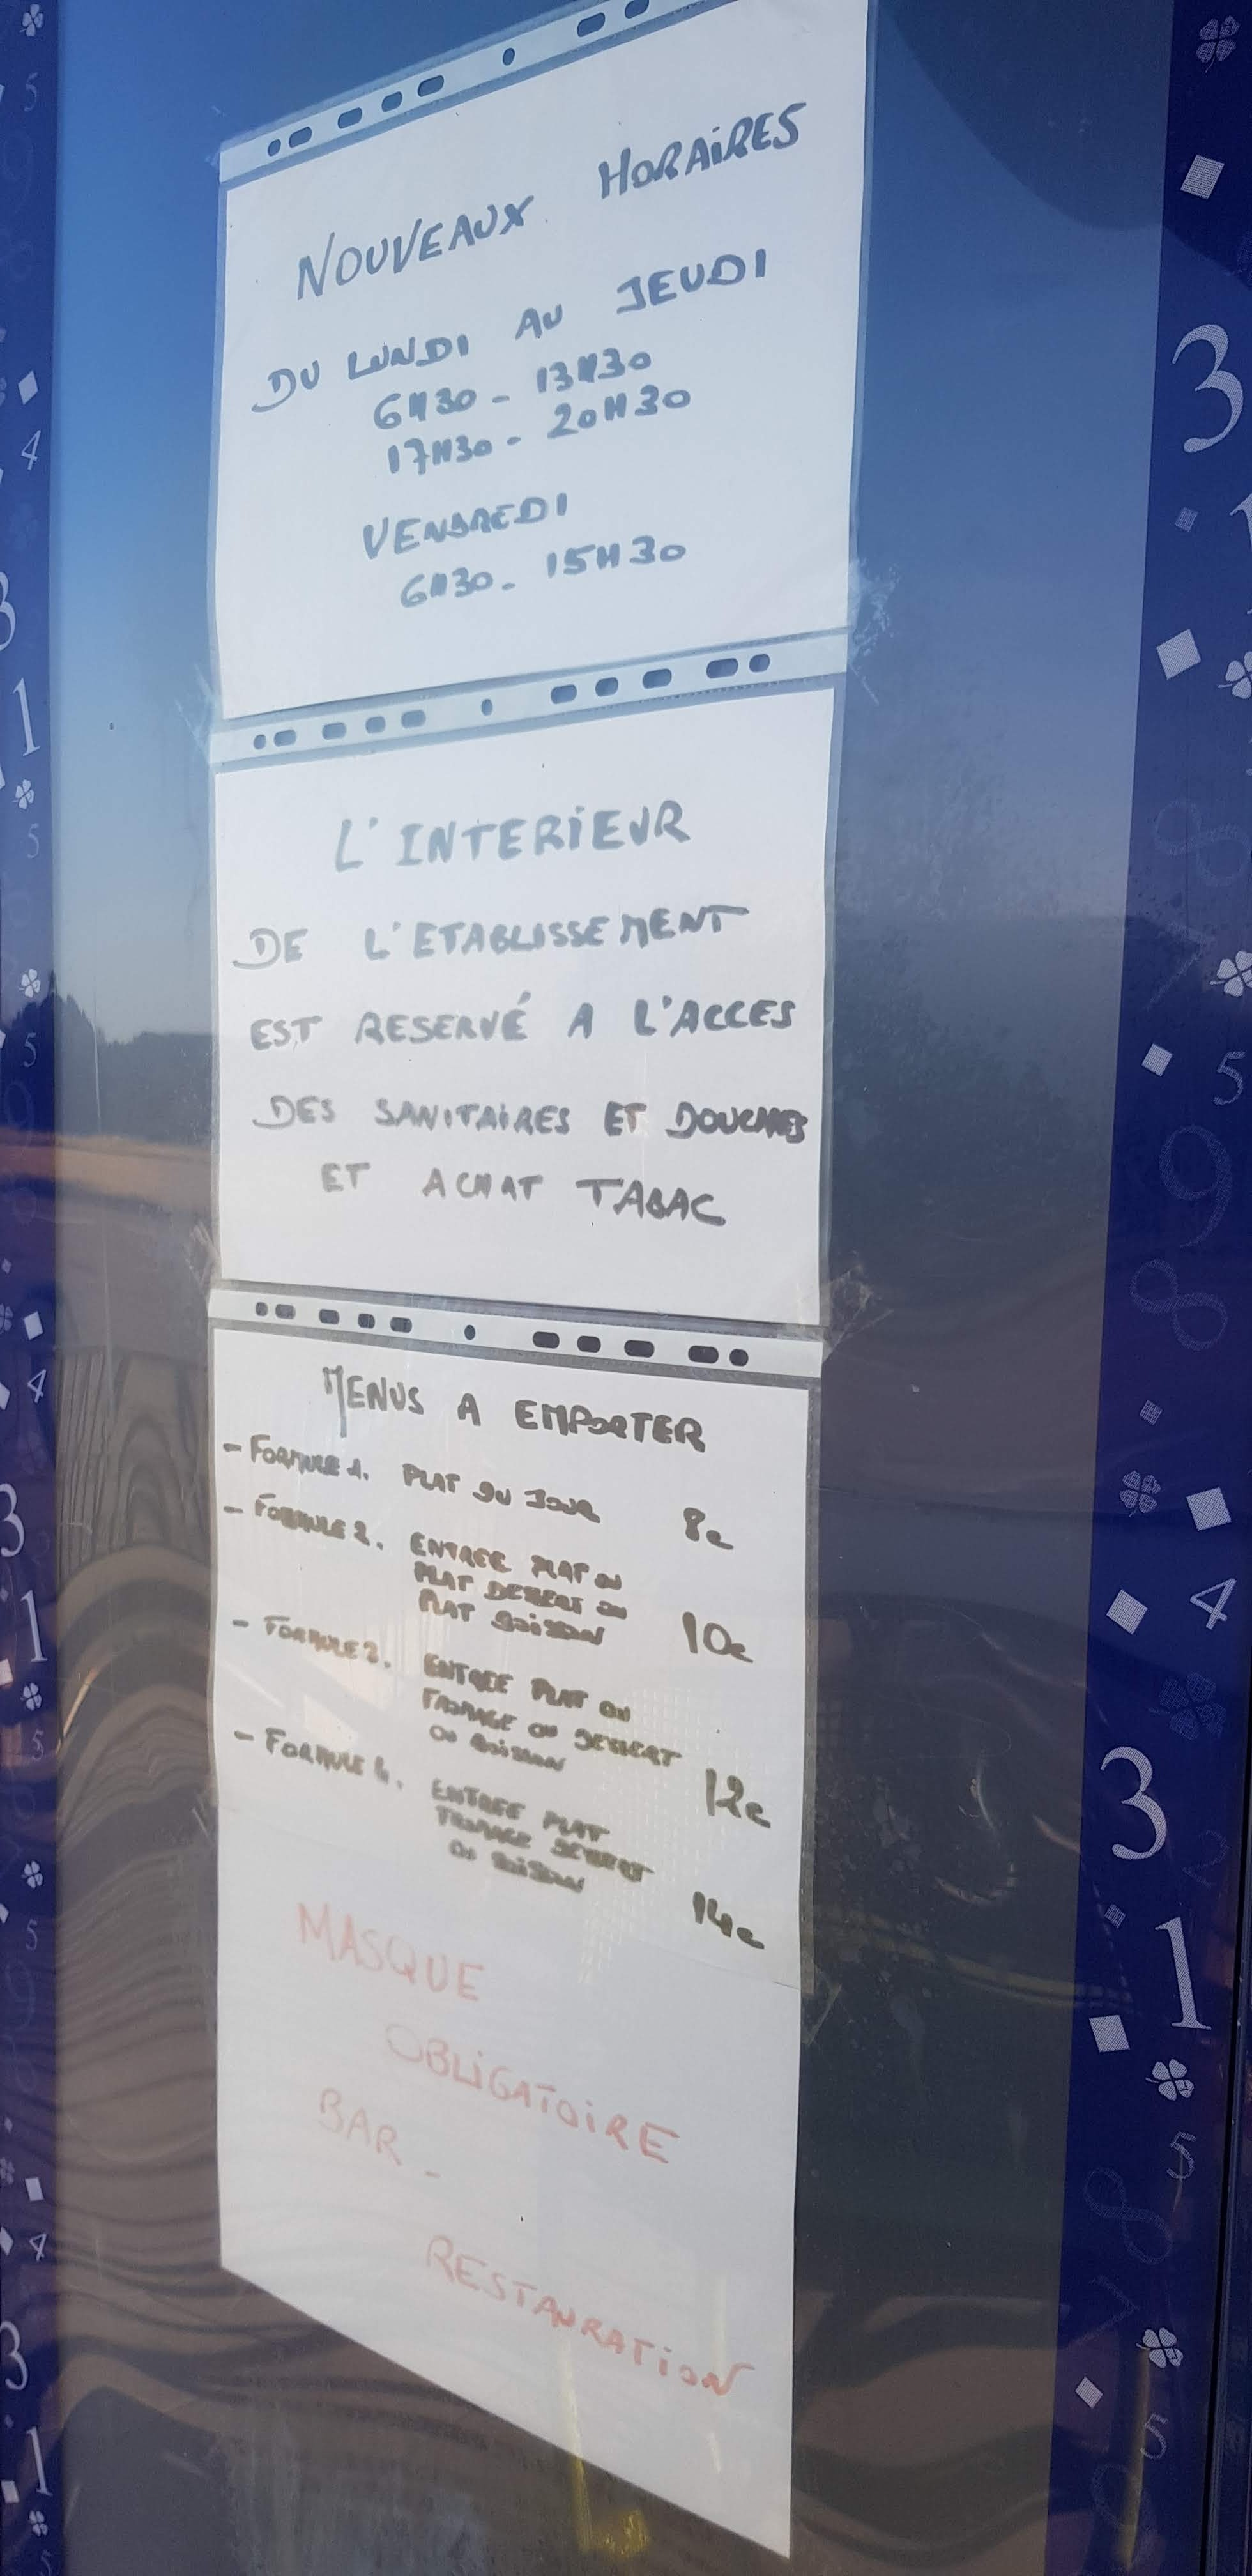 NOUVEAUX HORAiRES
DU LUNDI AU JEUDI
6H30 - 13H30
17H30 - 20H30
VENDREDI
6H30 - 15H30
L'INTERiEUR
DE L'ETABLISSEMENT
EST RESERVÉ A L'ACCES
DES SANITAiRES ET DOUCHES
ET ACHAT TABAC
MENUS A EMPORTER
- FORMULE 1. PLAT DU JOUR 8€
- FORMULE 2. ENTREE PLAT ou
PLAT DESSERT ou
PLAT BOiSSON 10€
- FORMULE 3. ENTREE PLAT ou
FROMAGE ou DESSERT
ou BOiSSON 12€
- FORMULE 4. ENTREE PLAT
FROMAGE DESSERT
ou BOiSSON 14€
MASQUE
OBLiGATOiRE
BAR -
RESTAURATiON